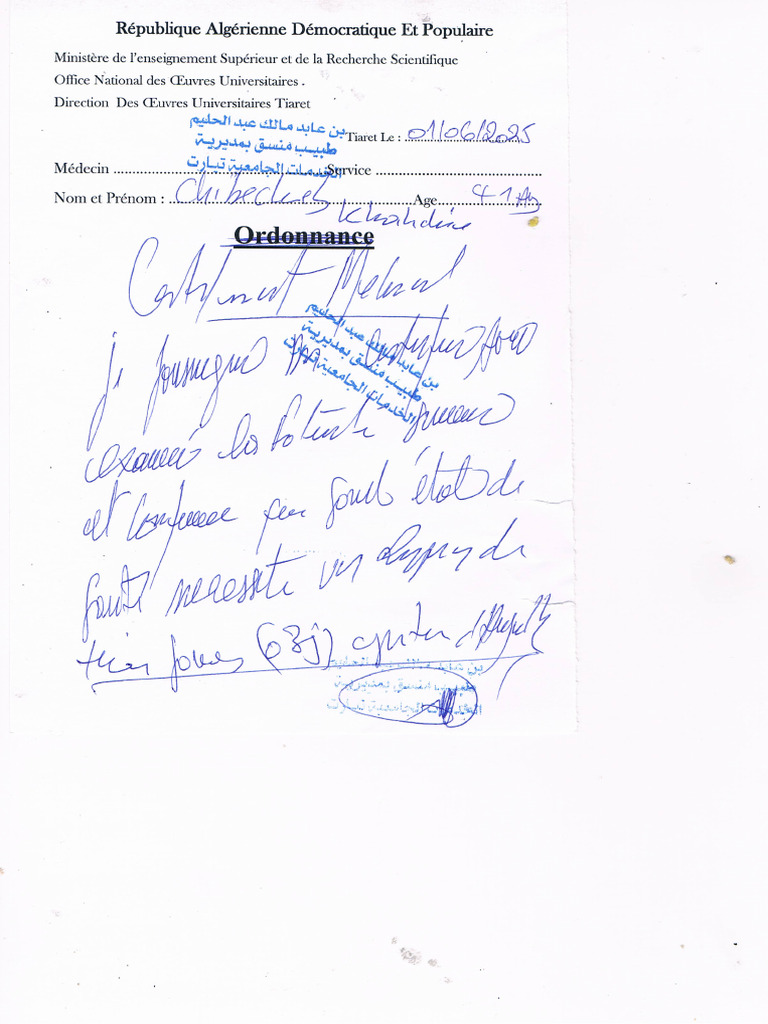 République Algérienne Démocratique Et Populaire
Ministère de l'enseignement Supérieur et de la Recherche Scientifique
Office National des Œuvres Universitaires .
Direction Des Œuvres Universitaires Tiaret
بن عابد مالك عبد الحليم
طبيب منسق بمديرية
الخدمات الجامعية تيارت
Tiaret Le : 01/06/2025
Médecin ........ Service ........
Nom et Prénom : Age 41 Ans
Ordonnance
Certificat Médical
je soussigné certifie avoir
بن عابد مالك عبد الحليم
طبيب منسق بمديرية
الخدمات الجامعية تيارت
examiné
et confirme que son état de
santé nécessite un de
trois jours (03j) à compter d'
بن عابد مالك عبد الحليم
طبيب منسق بمديرية
الخدمات الجامعية تيارت